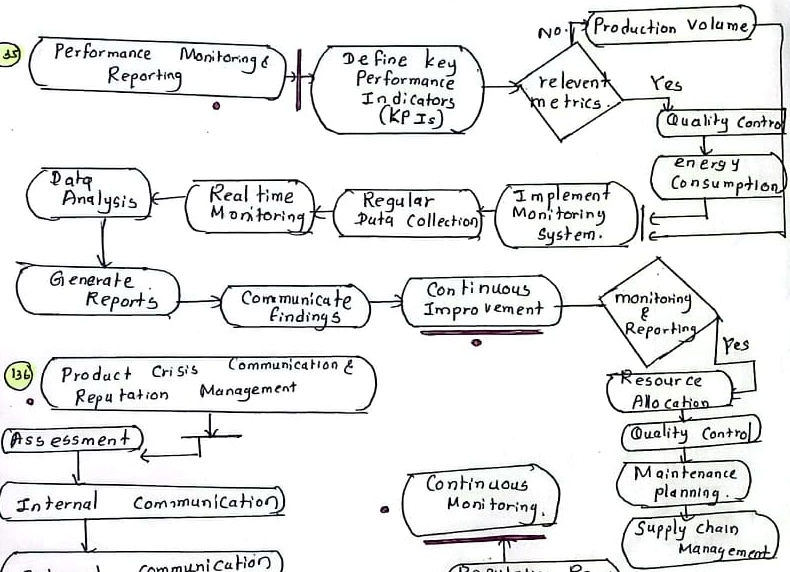 35
Performance Monitoring &
Reporting
Define key
Performance
Indicators
(KPIs)
relevent
metrics.
No.
Production Volume
Yes
Quality Control
energy
Consumption
Implement
Monitoring
System.
Regular
Data Collection
Real time
Monitoring
Data
Analysis
Generate
Reports
Communicate
findings
Continuous
Improvement
monitoring
&
Reporting
Yes
Resource
Allocation
Quality Control
Maintenance
planning.
Supply chain
Management
136
Product Crisis Communication &
Reputation Management
Assessment
Internal Communication
Communication
Continuous
Monitoring.